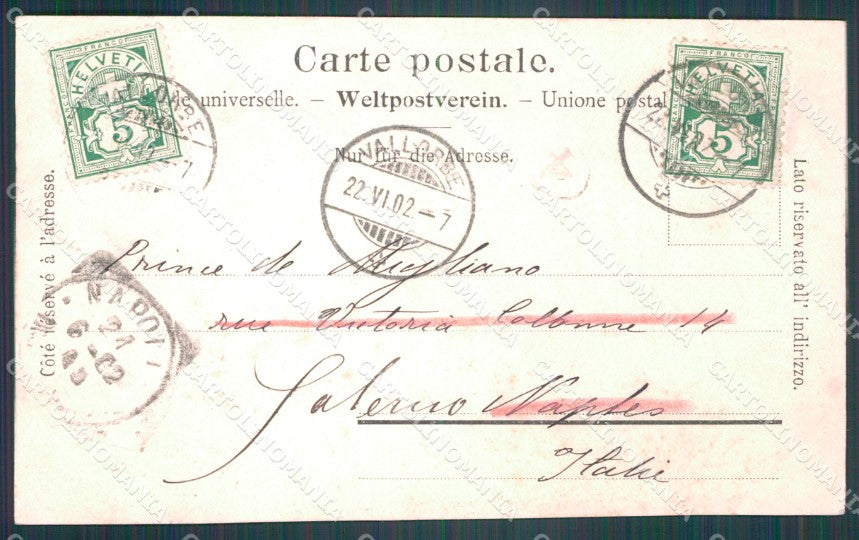 Carte postale.
universelle. – Weltpostverein. – Unione postal
Nur für die Adresse.
Côté réservé à l'adresse.
Lato riservato all' indirizzo.
FRANCO
HELVETIA
5
FRANCO
HELVETIA
5
VALLORBE
22.VI.02 – 7
NAPOLI
Prince de Migliano
rue Victoria Colonne 14
Salerno Naples
Italie
CARTOLINOMANIA